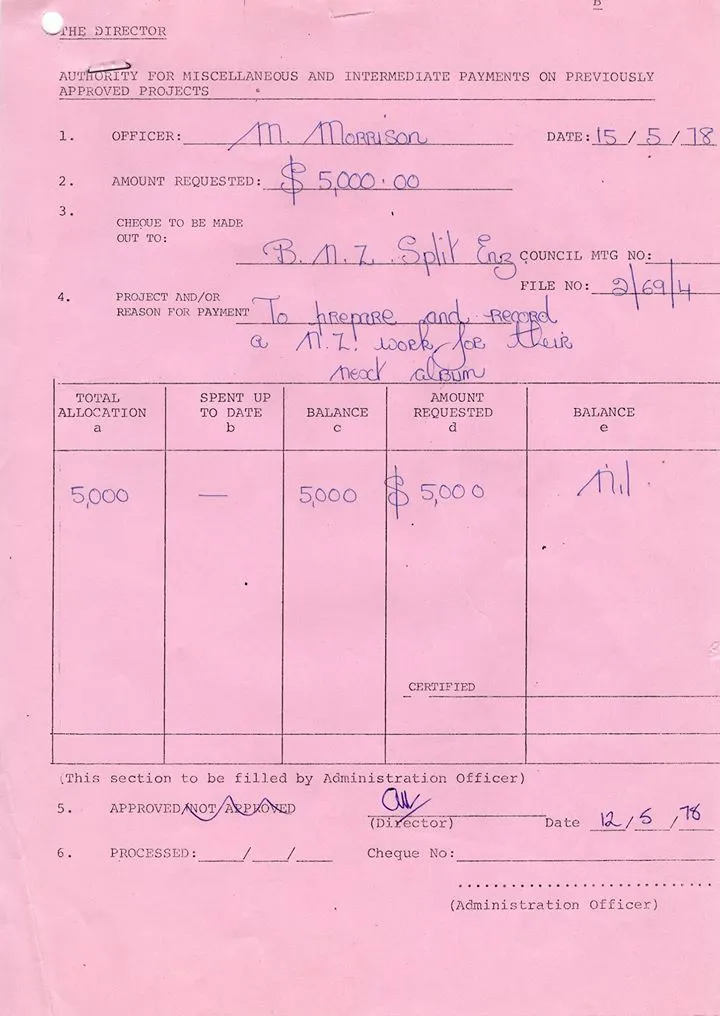 B
THE DIRECTOR
AUTHORITY FOR MISCELLANEOUS AND INTERMEDIATE PAYMENTS ON PREVIOUSLY
APPROVED PROJECTS
1. OFFICER: M. MORRISON DATE: 15 / 5 / 78
2. AMOUNT REQUESTED: $ 5,000.00
3. CHEQUE TO BE MADE
OUT TO: B.N.Z. Split Enz COUNCIL MTG NO:
FILE NO: 2/69/4
4. PROJECT AND/OR
REASON FOR PAYMENT To prepare and record
a N.Z. work for their
next album
TOTAL ALLOCATION a SPENT UP TO DATE b BALANCE c AMOUNT REQUESTED d BALANCE e
5,000 — 5,000 $ 5,000 Nil
CERTIFIED
(This section to be filled by Administration Officer)
5. APPROVED/NOT APPROVED (Director) Date 12 / 5 / 78
6. PROCESSED: / / Cheque No:
(Administration Officer)